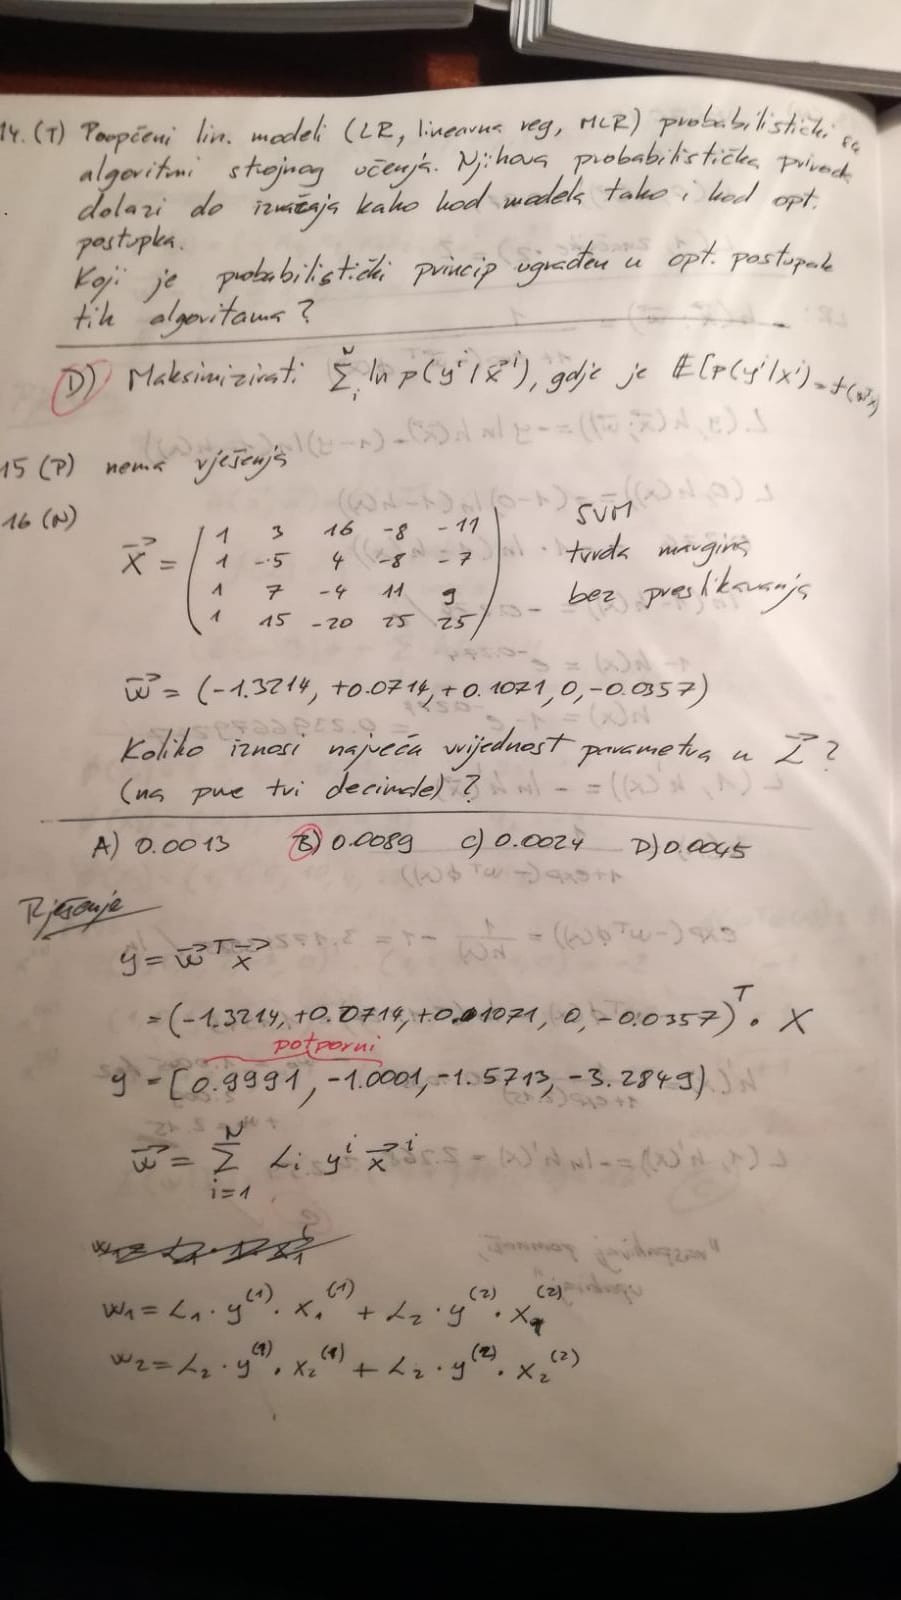 14. (T) Poopćeni lin. modeli (LR, linearna reg, MLR) probabilistički su
algoritmi strojnog učenja. Njihova probabilistička priroda
dolazi do izražaja kako kod modela tako i kod opt.
postupka.
Koji je probabilistički princip ugrađen u opt. postupak
tih algoritama?
D) Maksimizirati Σ_i^N ln p(y^i | x⃗^i), gdje je E[p(y^i|x^i) = f(w^Tx)
15 (P) nema rješenja
16 (N)
X⃗ = ( 1 3 16 -8 -11
1 -5 4 -8 -7
1 7 -4 11 9
1 15 -20 25 25 )
SVM
tvrda margina
bez preslikavanja
w⃗ = (-1.3214, +0.0714, +0.1071, 0, -0.0357)
Koliko iznosi najveća vrijednost parametra u α⃗?
(na prve tri decimale)?
A) 0.0013 B) 0.0089 C) 0.0024 D) 0.0045
Rješenje
y = w⃗^T x⃗
= (-1.3214, +0.0714, +0.1071, 0, -0.0357)^T · X
potporni
y = [0.9991, -1.0001, -1.5713, -3.2849]
w⃗ = Σ_{i=1}^N α_i y^i x⃗^i
w_1 = α_1 · y^(1) · x_1^(1) + α_2 · y^(2) · x_1^(2)
w_2 = α_2 · y^(1) · x_2^(1) + α_2 · y^(2) · x_2^(2)